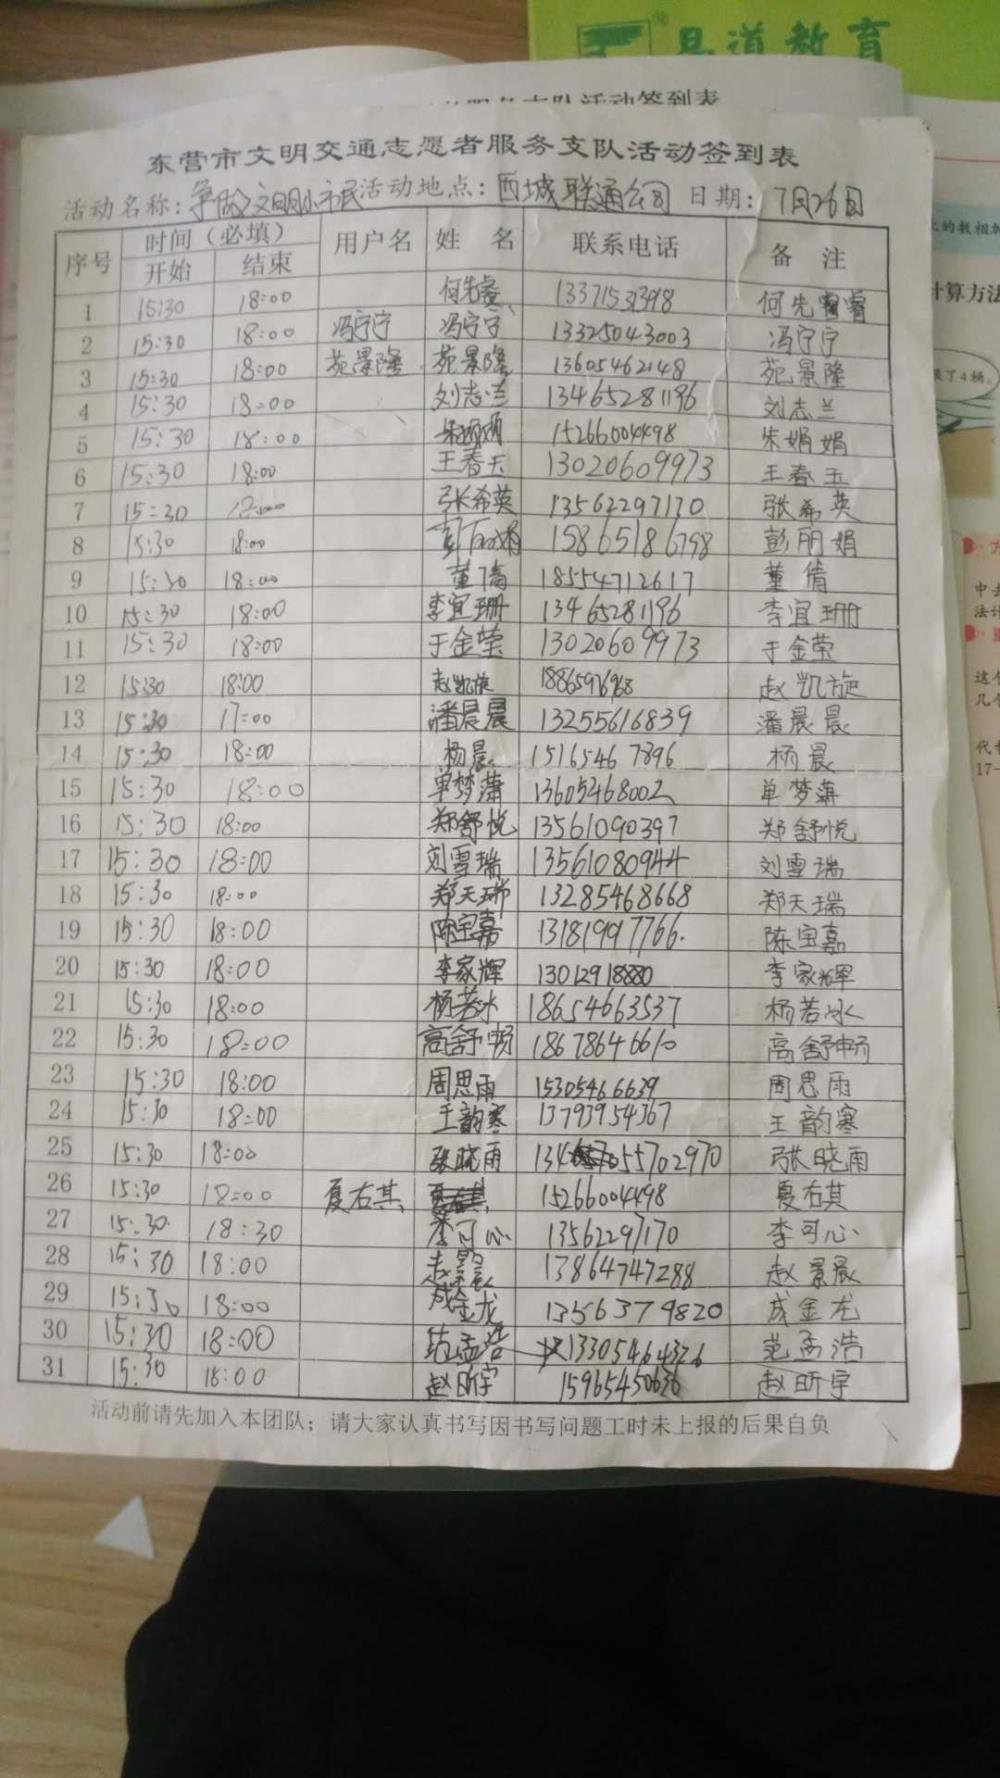 易道教育
东营市文明交通志愿者服务支队活动签到表
活动名称：争做文明小市民 活动地点：西城联通公司 日期：7月26日
序号 时间（必填） 用户名 姓名 联系电话 备注
开始 结束
1 15:30 18:00 何先睿 13371531398 何先睿
2 15:30 18:00 冯宁宁 冯宁宁 13325043003 冯宁宁
3 15:30 18:00 苑景隆 苑景隆 13605462148 苑景隆
4 15:30 18:00 刘志兰 13465281196 刘志兰
5 15:30 18:00 朱娟娟 15266004498 朱娟娟
6 15:30 18:00 王春玉 13020609973 王春玉
7 15:30 18:00 张希英 13562297170 张希英
8 15:30 18:00 彭丽娟 15865186798 彭丽娟
9 15:30 18:00 董倩 18554712617 董倩
10 15:30 18:00 李宜珊 13465281196 李宜珊
11 15:30 18:00 于金荣 13020609973 于金荣
12 15:30 18:00 赵凯旋 18865976968 赵凯旋
13 15:30 17:00 潘晨晨 13255616839 潘晨晨
14 15:30 18:00 杨晨 15165467896 杨晨
15 15:30 18:00 单梦潇 13605468002 单梦潇
16 15:30 18:00 郑舒悦 13561090397 郑舒悦
17 15:30 18:00 刘雪瑞 13561080944 刘雪瑞
18 15:30 18:00 郑天瑞 13285468668 郑天瑞
19 15:30 18:00 陈宝嘉 13181997766 陈宝嘉
20 15:30 18:00 李家辉 13012918880 李家辉
21 15:30 18:00 杨若冰 18654663537 杨若冰
22 15:30 18:00 高舒畅 18678646610 高舒畅
23 15:30 18:00 周思雨 15305466639 周思雨
24 15:30 18:00 王韵寒 13793954367 王韵寒
25 15:30 18:00 张晓雨 张晓雨
26 15:30 18:00 夏右其 15266004498 夏右其
27 15:30 18:30 李可心 13562297170 李可心
28 15:30 18:00 赵景晨 13864747288 赵景晨
29 15:30 18:00 成金龙 13563779820 成金龙
30 15:30 18:00 范孟浩 13305464326 范孟浩
31 15:30 18:00 赵昕宇 15965450636 赵昕宇
活动前请先加入本团队；请大家认真书写因书写问题工时未上报的后果自负